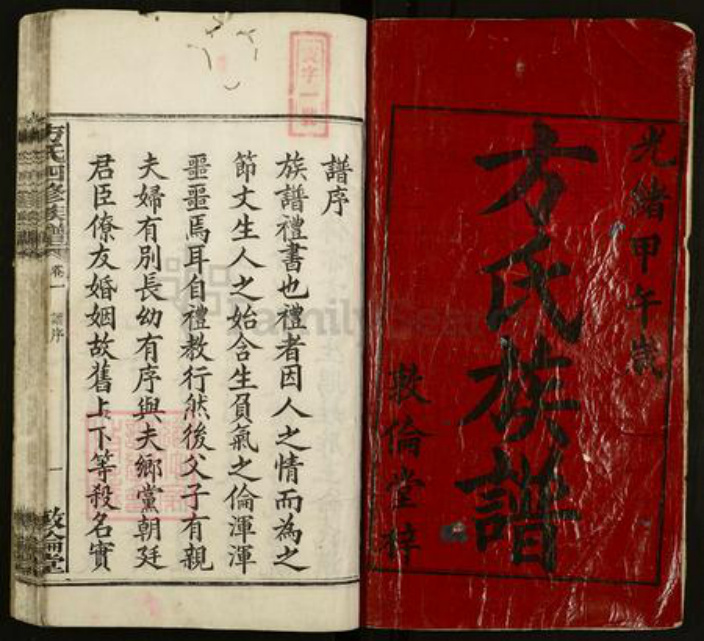 光緒甲午歲
方氏族譜
敦倫堂梓
譜序
族譜禮書也禮者因人之情而為之
節文生人之始含生負氣之倫渾渾
噩噩焉耳自禮教行然後父子有親
夫婦有別長幼有序與夫鄉黨朝廷
君臣僚友婚姻故舊上下等殺名實
方氏四修族譜
卷一
譜序
一
敦倫堂
字一號